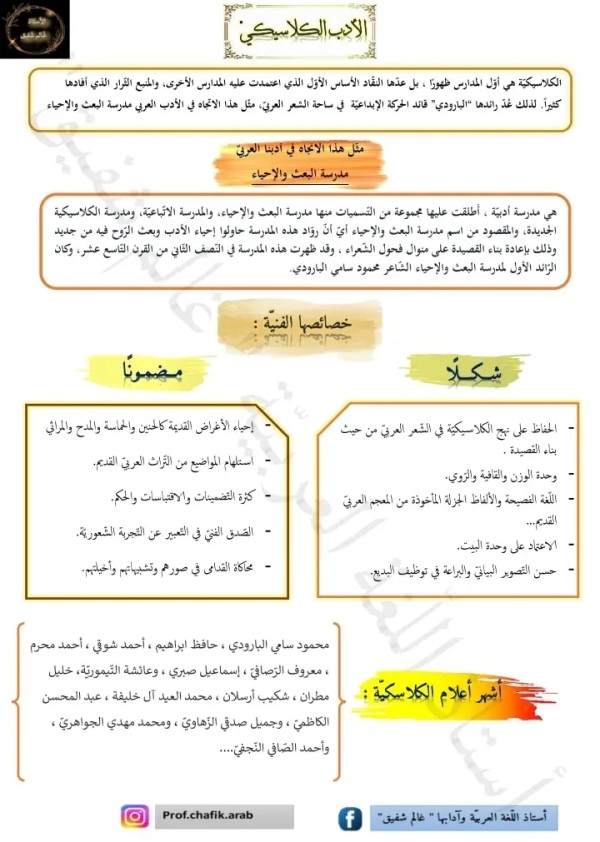 الأستاذ
غالم شفيق
الأدب الكلاسيكي
الكلاسيكيّة هي أوّل المدارس ظهورًا ، بل عدّها النقّاد الأساس الأوّل الذي اعتمدت عليه المدارس الأخرى، والمنبع القرار الذي أفادها
كثيرًا. لذلك عُدّ رائدها "البارودي" قائد الحركة الإبداعيّة في ساحة الشعر العربيّ، مثّل هذا الاتجاه في الأدب العربي مدرسة البعث والإحياء
مثّل هذا الاتجاه في أدبنا العربيّ
مدرسة البعث والإحياء
هي مدرسة أدبيّة ، أطلقت عليها مجموعة من التّسميات منها مدرسة البعث والإحياء، والمدرسة الاتّباعيّة، ومدرسة الكلاسيكية
الجديدة، والمقصود من اسم مدرسة البعث والإحياء أيّ أنّ روّاد هذه المدرسة حاولوا إحياء الأدب وبعث الرّوح فيه من جديد
وذلك بإعادة بناء القصيدة على منوال فحول الشّعراء ، وقد ظهرت هذه المدرسة في النّصف الثّاني من القرن التّاسع عشر، وكان
الرّائد الأول لمدرسة البعث والإحياء الشّاعر محمود سامي البارودي.
خصائصها الفنيّة :
شكـلًا
- الحفاظ على نهج الكلاسيكيّة في الشّعر العربيّ من حيث
بناء القصيدة .
- وحدة الوزن والقافية والرّوي.
- اللّغة الفصيحة والألفاظ الجزلة المأخوذة من المعجم العربيّ
القديم...
- الاعتماد على وحدة البيت.
- حسن التّصوير البيانيّ والبراعة في توظيف البديع.
مضمونًا
- إحياء الأغراض القديمة كالحنين والحماسة والمدح والمراثي
- استلهام المواضيع من التّراث العربيّ القديم.
- كثرة التّضمينات والاقتباسات والحكم.
- الصّدق الفنيّ في التّعبير عن التّجربة الشّعوريّة.
- محاكاة القدامى في صورهم وتشبيهاتهم وأخيلتهم.
أشهر أعلام الكلاسكيّة :
محمود سامي البارودي ، حافظ ابراهيم ، أحمد شوقي ، أحمد محرم
، معروف الرّصافيّ ، إسماعيل صبري ، وعائشة التّيموريّة، خليل
مطران ، شكيب أرسلان ، محمد العيد آل خليفة ، عبد المحسن
الكاظميّ ، وجميل صدقي الزّهاويّ ، ومحمد مهدي الجواهريّ ،
وأحمد الصّافي النّجفيّ....
أستاذ اللّغة العربيّة وآدابها " غالم شفيق"
Prof.chafik.arab
أستاذ اللّغة العربيّة " غالم شفيق "